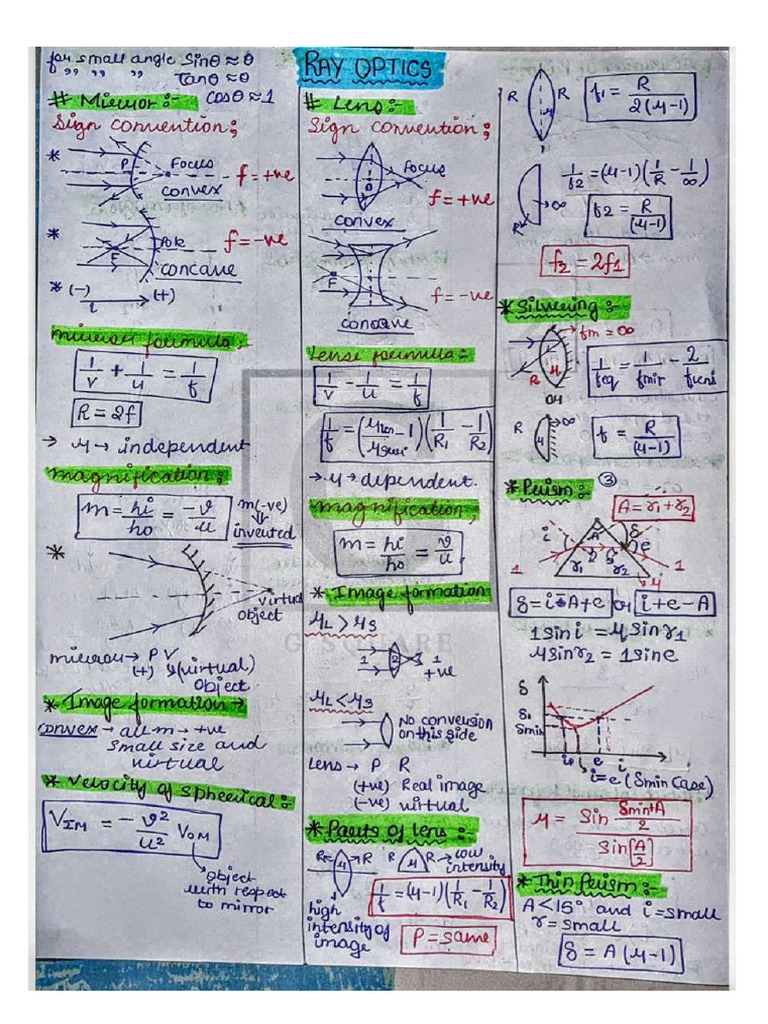 RAY OPTICS
for small angle Sinθ ≈ θ
,, ,, ,, Tanθ ≈ θ
Cosθ ≈ 1
# Mirror :-
Sign convention;
* P Focus
convex f = +ve
* Pole
F f = -ve
concave
* (-) (+)
i
mirror formula;
1/v + 1/u = 1/f
R = 2f
→ μ → independent
magnification;
m = hi/ho = -v/u m(-ve)
inverted
*
virtual
object
mirror → P V
(+) &(virtual)
object
* Image formation →
convex → all m → +ve
small size and
virtual
* Velocity of spherical :-
V_IM = - v²/u² V_OM
object
with respect
to mirror
# Lens :-
Sign convention;
Focus
f = +ve
convex
F
f = -ve
concave
Lense formula :-
1/v - 1/u = 1/f
1/f = (μ_len/μ_surr - 1)(1/R₁ - 1/R₂)
→ μ → dependent.
magnification;
m = hi/ho = v/u
* Image formation
μ_L > μ_S
1 2 1
+ve
μ_L < μ_S
No conversion
on this side
Lens → P R
(+ve) Real image
(-ve) virtual
* Parts of lens :-
R ← μ → R R μ R → low
intensity
1/f = (μ-1)(1/R₁ - 1/R₂)
high
intensity of
image
P = same
R μ R f₁ = R/2(μ-1)
1/f2 = (μ-1)(1/R - 1/∞)
R → ∞
f2 = R/(μ-1)
f₂ = 2f₁
* Silvering :-
fm = ∞
R μ
1/feq = 1/fmir - 2/flens
or
R μ ∞ f = R/(μ-1)
* Prism : ③
A = r₁ + r₂
i A δ e
1 r₁ r₂ μ 1
δ = i - A + e or i + e - A
1 sin i = μ sin r₁
μ sin r₂ = 1 sin e
δ
δ₁
δmin
i₁ e i
i = e (δmin case)
μ = Sin (δmin+A)/2 / Sin [A/2]
* Thin Prism :-
A < 15° and i = small
r = small
δ = A (μ-1)
G SQUARE